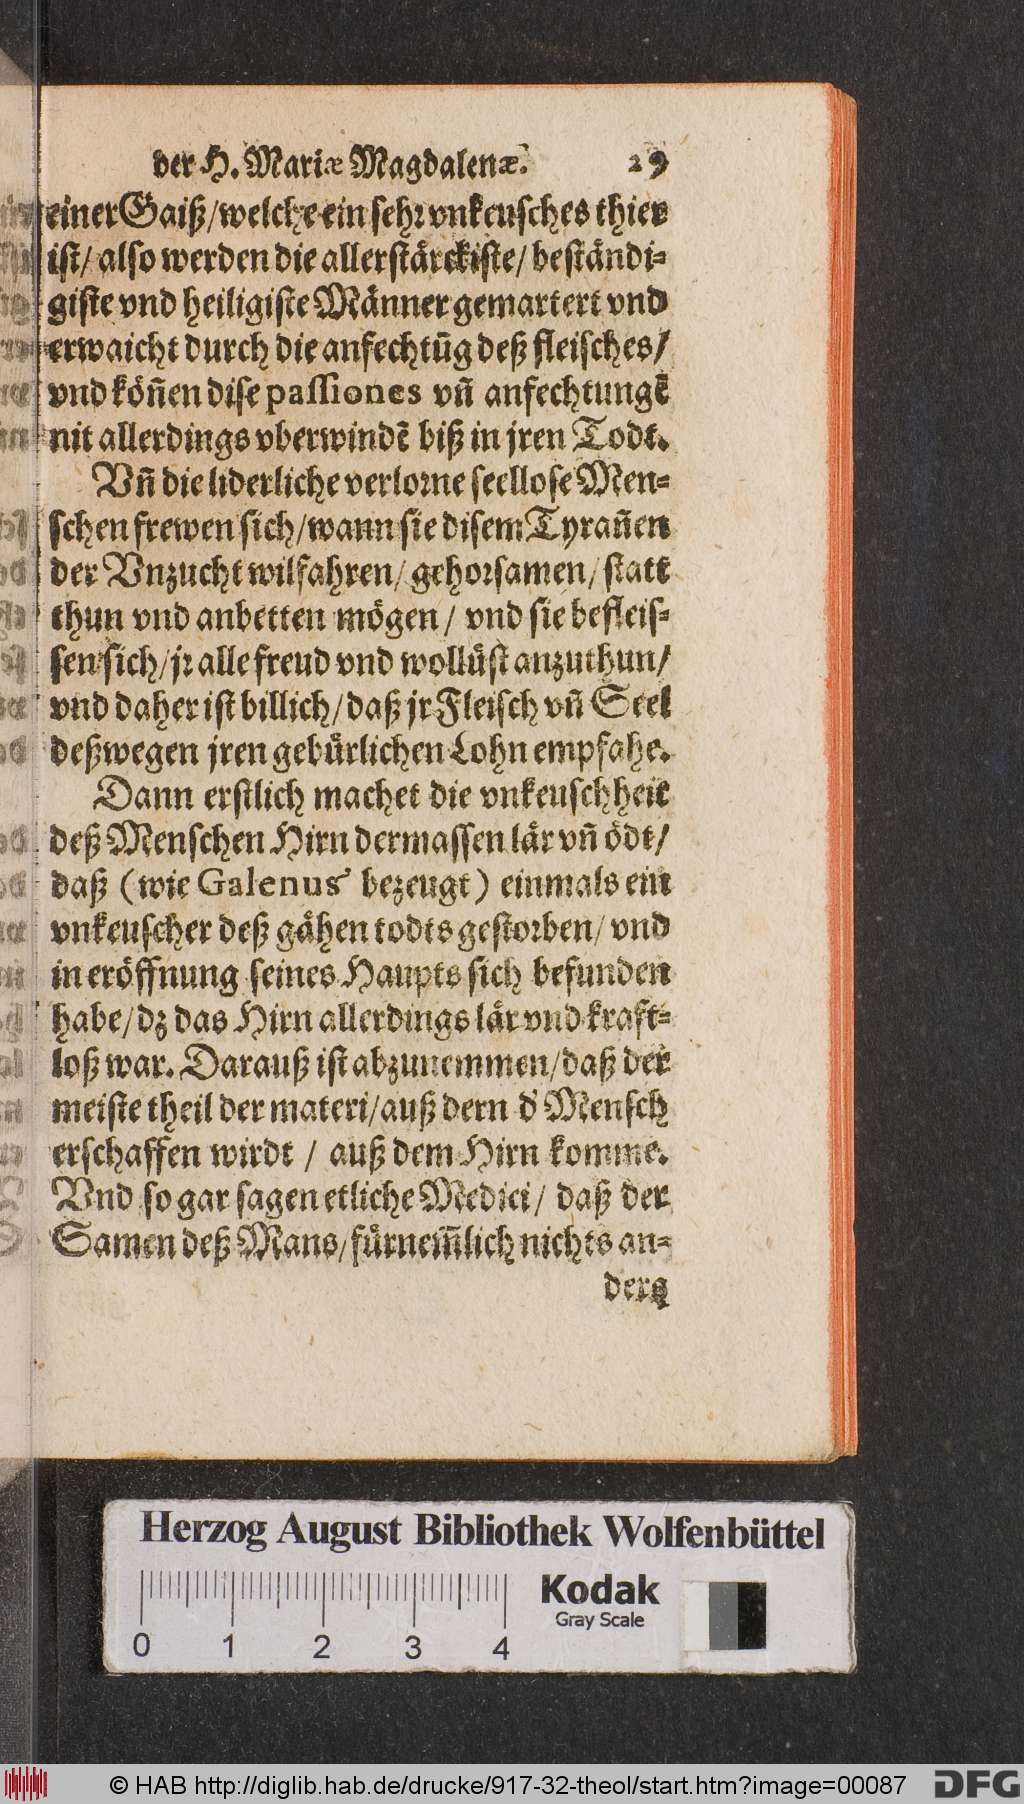 der H. Mariæ Magdalenæ. 29
einer Gaiß/welche ein sehr vnkeusches thier
ist/ also werden die allerstärckiste/ beständi-
giste vnd heiligiste Männer gemartert vnd
erwaicht durch die anfechtũg deß fleisches/
vnd köñen dise passiones vñ anfechtungẽ
nit allerdings vberwindẽ biß in jren Todt.
Vñ die liderliche verlorne seellose Men-
schen frewen sich/wann sie disem Tyrañen
der Vnzucht wilfahren/ gehorsamen/ statt
thun vnd anbetten mögen/ vnd sie befleis-
sen sich/jr alle freud vnd wollüst anzuthun/
vnd daher ist billich/daß jr Fleisch vñ Seel
deßwegen jren gebürlichen Lohn empfahe.
Dann erstlich machet die vnkeuschheit
deß Menschen Hirn dermassen lär vñ ödt/
daß (wie Galenus bezeugt) einmals ein
vnkeuscher deß gähen todts gestorben/ vnd
in eröffnung seines Haupts sich befunden
habe/dz das Hirn allerdings lär vnd kraft-
loß war. Darauß ist abzunemmen/daß der
meiste theil der materi/auß dern d' Mensch
erschaffen wirdt / auß dem Hirn komme.
Vnd so gar sagen etliche Medici/ daß der
Samen deß Mans/fürnem̃lich nichts an-
ders
Herzog August Bibliothek Wolfenbüttel
Kodak
Gray Scale
0 1 2 3 4
© HAB http://diglib.hab.de/drucke/917-32-theol/start.htm?image=00087
DFG